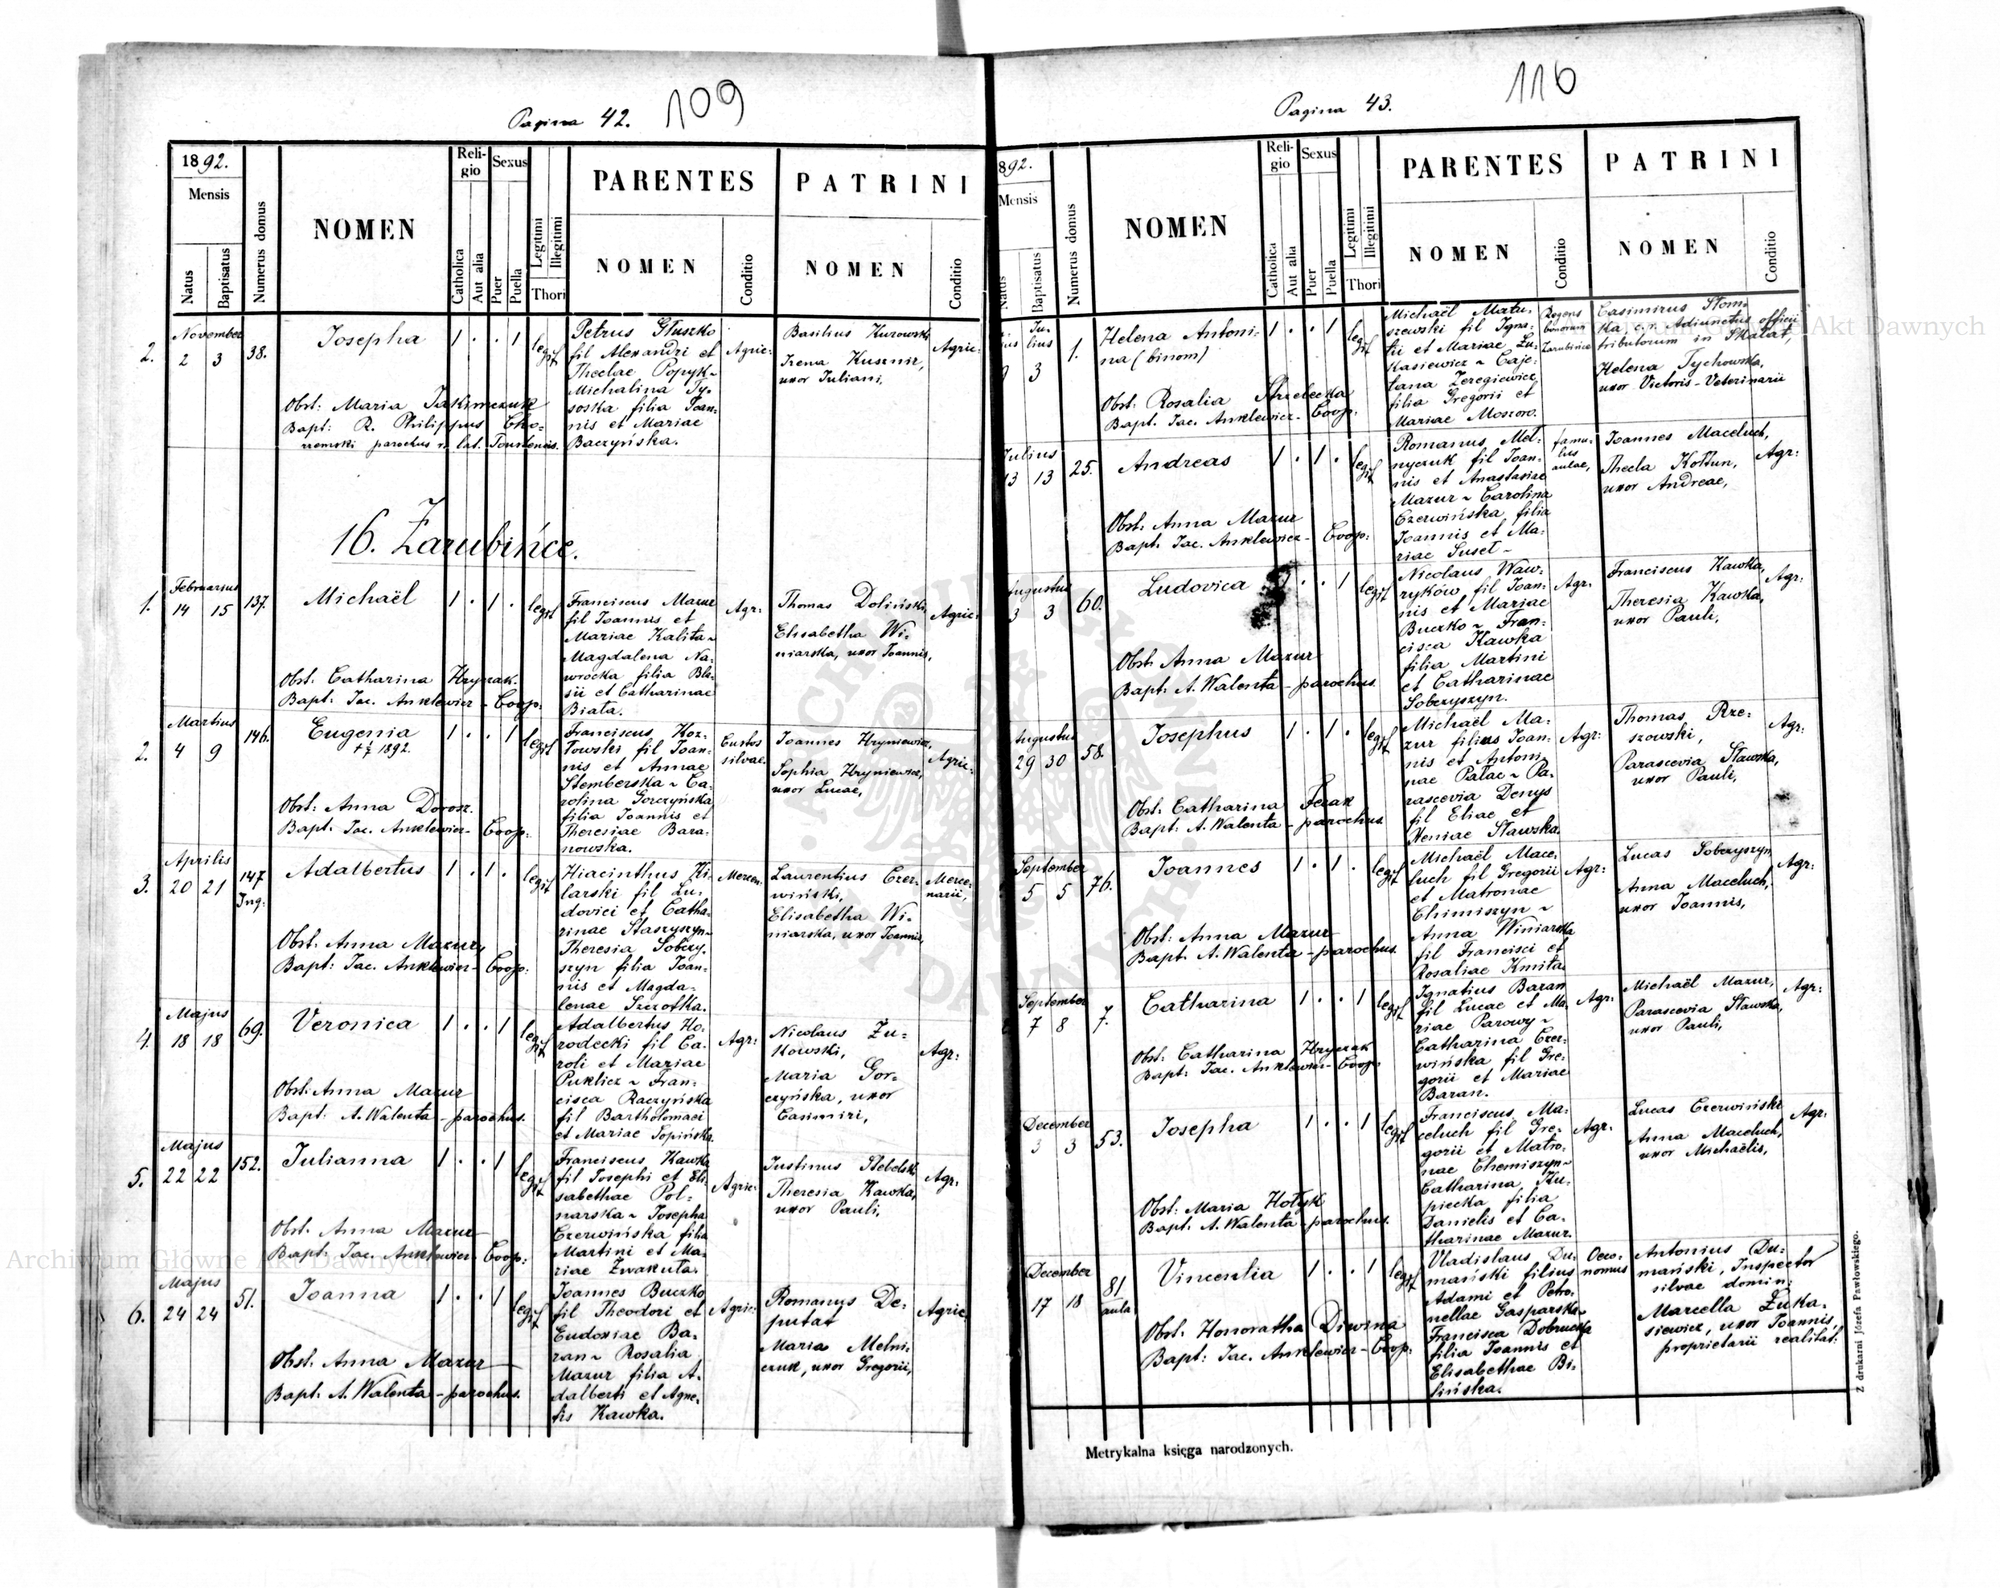 Pagina 42. 109
1892.
Mensis
Natus
Baptisatus
Numerus domus
NOMEN
Religio
Catholica
Aut alia
Sexus
Puer
Puella
Legitimi
Illegitimi
Thori
PARENTES
NOMEN
Conditio
PATRINI
NOMEN
Conditio
2.
November
2 3
38.
Josepha
1 . . 1
legit
Obst: Maria Jakimczuk
Bapt: R. Philippus Cho-
rzemski parochus r. lat. Toustensis.
Petrus Głuszko
fil Alexandri et
Theclae Popyk ~
Michalina Ty-
soska filia Joan-
nis et Mariae
Baczyńska.
Agric:
Basilius Kurowski
Irena Kusznir,
uxor Juliani,
Agric:
16. Zarubińce.
1.
Februarius
14 15
137.
Michaël
1 . 1 .
legit
Obst: Catharina Hryczak.
Bapt: Jac. Anklewicz - Coop:
Franciscus Mazur
fil Joannis et
Mariae Kalita ~
Magdalena Na-
wrocka filia Bla-
sii et Catharinae
Biała.
Agr:
Thomas Doliński,
Elisabetha Wi-
niarska, uxor Joannis,
Agric:
2.
Martius
4 9
146.
Eugenia
1892.
1 . . 1
legit
Obst: Anna Dorosz
Bapt: Jac. Anklewicz - Coop:
Franciscus Koz-
łowski fil Joan-
nis et Annae
Stemberska ~ Ca-
rolina Gorczyńska
filia Joannis et
Theresiae Bara-
nowska.
Custos
silvae
Joannes Hryniewicz,
Sophia Hryniewicz,
uxor Lucae,
Agric:
3.
Aprilis
20 21
147
Inq:
Adalbertus
1 . 1 .
legit
Obst: Anna Mazur
Bapt: Jac. Anklewicz - Coop:
Hiacinthus Hi-
larski fil Lu-
dovici et Catha-
rinae Staszyszyn ~
Theresia Sobczy-
szyn filia Joan-
nis et Magda-
lenae Szczotka.
Mercen:
Laurentius Czer-
wiński,
Elisabetha Wi-
niarska, uxor Joannis,
Merce-
narii,
4.
Majus
18 18
69.
Veronica
1 . . 1
legit
Obst: Anna Mazur
Bapt: A. Walenta - parochus.
Adalbertus Ho-
rodecki fil Ca-
roli et Mariae
Puklicz ~ Fran-
cisca Raczyńska
fil Bartholomaei
et Mariae Topińska.
Agr:
Nicolaus Żu-
kowski,
Maria Gor-
czyńska, uxor
Casimiri,
Agr:
5.
Majus
22 22
152.
Julianna
1 . . 1
legit
Obst: Anna Mazur
Bapt: Jac. Anklewicz - Coop:
Franciscus Kawka
fil Josephi et Eli-
sabethae Pol-
narska ~ Josepha
Czerwińska filia
Martini et Ma-
riae Zwakuta.
Agric:
Justinus Hlebelski
Theresia Kawka,
uxor Pauli,
Agr:
6.
Majus
24 24
51.
Joanna
1 . . 1
legit
Obst: Anna Mazur
Bapt: A. Walenta - parochus.
Joannes Buczko
fil Theodori et
Eudoxiae Ba-
ran ~ Rosalia
Mazur filia A-
dalberti et Agne-
tis Kawka.
Agric:
Romanus De-
putat
Maria Melni-
czuk, uxor Gregorii,
Agric:
Pagina 43. 110
892.
Mensis
Natus
Baptisatus
Numerus domus
NOMEN
Religio
Catholica
Aut alia
Sexus
Puer
Puella
Legitimi
Illegitimi
Thori
PARENTES
NOMEN
Conditio
PATRINI
NOMEN
Conditio
Ju-
lius
3
1.
Helena Antoni-
na (binom)
1 . . 1
legit
Obst: Rosalia Strzelecka
Bapt: Jac. Anklewicz - Coop:
Michaël Matu-
szewski fil Igna-
tii et Mariae Łu-
kasiewicz ~ Caje-
tana Zeregiewicz
filia Gregorii et
Mariae Moszoro.
Regens
bonorum
Zarubińce
Casimirus Słom-
ka, Adiunctus officii
tributorum in Skałat,
Helena Tychowska,
uxor Victoris - Veterinarii
Julius
13 13
25.
Andreas
1 . 1 .
legit
Obst: Anna Mazur
Bapt: Jac. Anklewicz - Coop:
Romanus Mel-
nyczuk fil Joan-
nis et Anastasiae
Mazur ~ Carolina
Czerwińska filia
Joannis et Ma-
riae Suset ~
famu-
lus
aulae,
Joannes Maceluch,
Thecla Kołtun,
uxor Andreae,
Agr:
Augustus
3 3
60.
Ludovica
1 . . 1
legit
Obst: Anna Mazur
Bapt: A. Walenta - parochus.
Nicolaus Waw-
ryków fil Joan-
nis et Mariae
Buczko ~ Fran-
cisca Kawka
filia Martini
et Catharinae
Sobczyszyn.
Agr:
Franciscus Kawka,
Theresia Kawka,
uxor Pauli,
Agr:
Augustus
29 30
58.
Josephus
1 . 1 .
legit
Obst: Catharina Fczak
Bapt: A. Walenta - parochus.
Michaël Ma-
zur filius Joan-
nis et Antoni-
nae Pałac ~ Pa-
rascevia Denys
fil Eliae et
Xeniae Sławska.
Agr:
Thomas Rze-
szowski,
Parascevia Sławska,
uxor Pauli,
Agr:
September
5 5
76.
Joannes
1 . 1 .
legit
Obst: Anna Mazur
Bapt: A. Walenta - parochus.
Michaël Mace-
luch fil Gregorii
et Matronae
Chimiszyn ~
Anna Winiarska
fil Francisci et
Rosaliae Kmita.
Agr:
Lucas Sobczyszyn
Anna Maceluch,
uxor Joannis,
Agr:
September
7 8
7.
Catharina
1 . . 1
legit
Obst: Catharina Hryczak
Bapt: Jac. Anklewicz - Coop:
Ignatius Baran
fil Lucae et Ma-
riae Parowy ~
Catharina Czer-
wińska fil Gre-
gorii et Mariae
Baran.
Agr:
Michaël Mazur,
Parascevia Sławska,
uxor Pauli,
Agr:
December
3 3
53.
Josepha
1 . . 1
legit
Obst: Maria Hołyk
Bapt: A. Walenta - parochus.
Franciscus Ma-
celuch fil Gre-
gorii et Matro-
nae Chemiszyn ~
Catharina Ku-
piecka filia
Danielis et Ca-
tharinae Mazur.
Agr:
Lucas Czerwiński
Anna Maceluch,
uxor Michaëlis,
Agr:
December
17 18
81
aula
Vincentia
1 . . 1
legit
Obst: Honoratha Diwina
Bapt: Jac. Anklewicz - Coop:
Vladislaus Du-
mański filius
Adami et Petro-
nellae Gasparska ~
Francisca Dobrucka
filia Joannis et
Elisabethae Bi-
lińska.
Oeco-
nomus
Antonius Du-
mański, Inspector
silvae domin:
Marcella Łuka-
siewicz, uxor Joannis,
proprietarii realitat:
Metrykalna księga narodzonych.
Z drukarni Józefa Pawłowskiego.
Archiwum Główne Akt Dawnych
Archiwum Główne Akt Dawnych